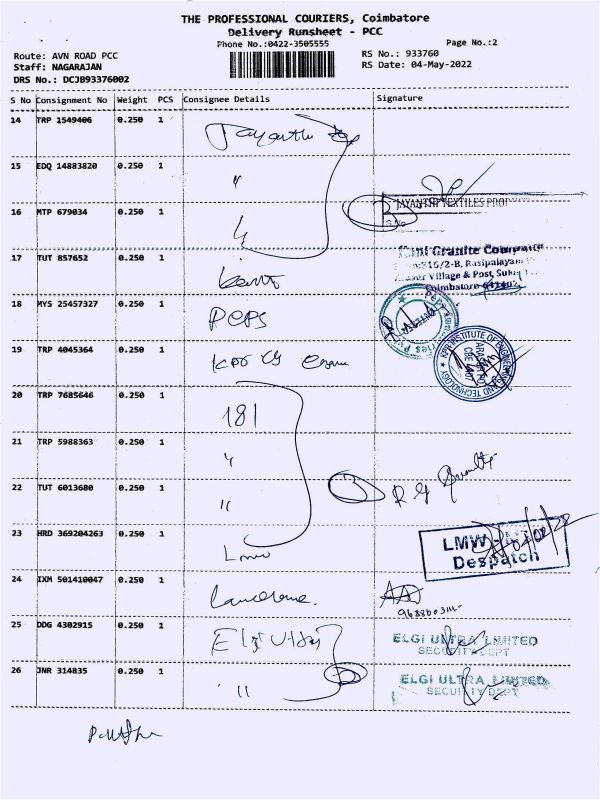 THE PROFESSIONAL COURIERS, Coimbatore
Delivery Runsheet - PCC
Phone No.:0422-3505555
Page No.:2
Route: AVN ROAD PCC
RS No.: 933760
Staff: NAGARAJAN
RS Date: 04-May-2022
DRS No.: DCJB93376002
S No Consignment No Weight PCS Consignee Details Signature
14 TRP 1549406 0.250 1
15 EDQ 14883820 0.250 1 "
JAYANTHI TEXTILES
16 MTP 679034 0.250 1
S.No
17 TUT 857652 0.250 1
Granite
316/2-B, Rasipalayam
Village & Post,
Coimbatore
18 MYS 25457327 0.250 1 PEPS
19 TRP 4045364 0.250 1
KPR INSTITUTE OF ENGINEERING AND TECHNOLOGY
20 TRP 7685646 0.250 1 181
21 TRP 5988363 0.250 1 "
22 TUT 6013680 0.250 1 "
3
23 HRD 369204263 0.250 1 Lmw
LMW
Despatch
24 IXM 501410047 0.250 1
25 DDG 4302915 0.250 1 Elgi Ultra
ELGI ULTRA LIMITED
SECURITY DEPT
26 JNR 314835 0.250 1 "
ELGI ULTRA LIMITED
SECURITY DEPT